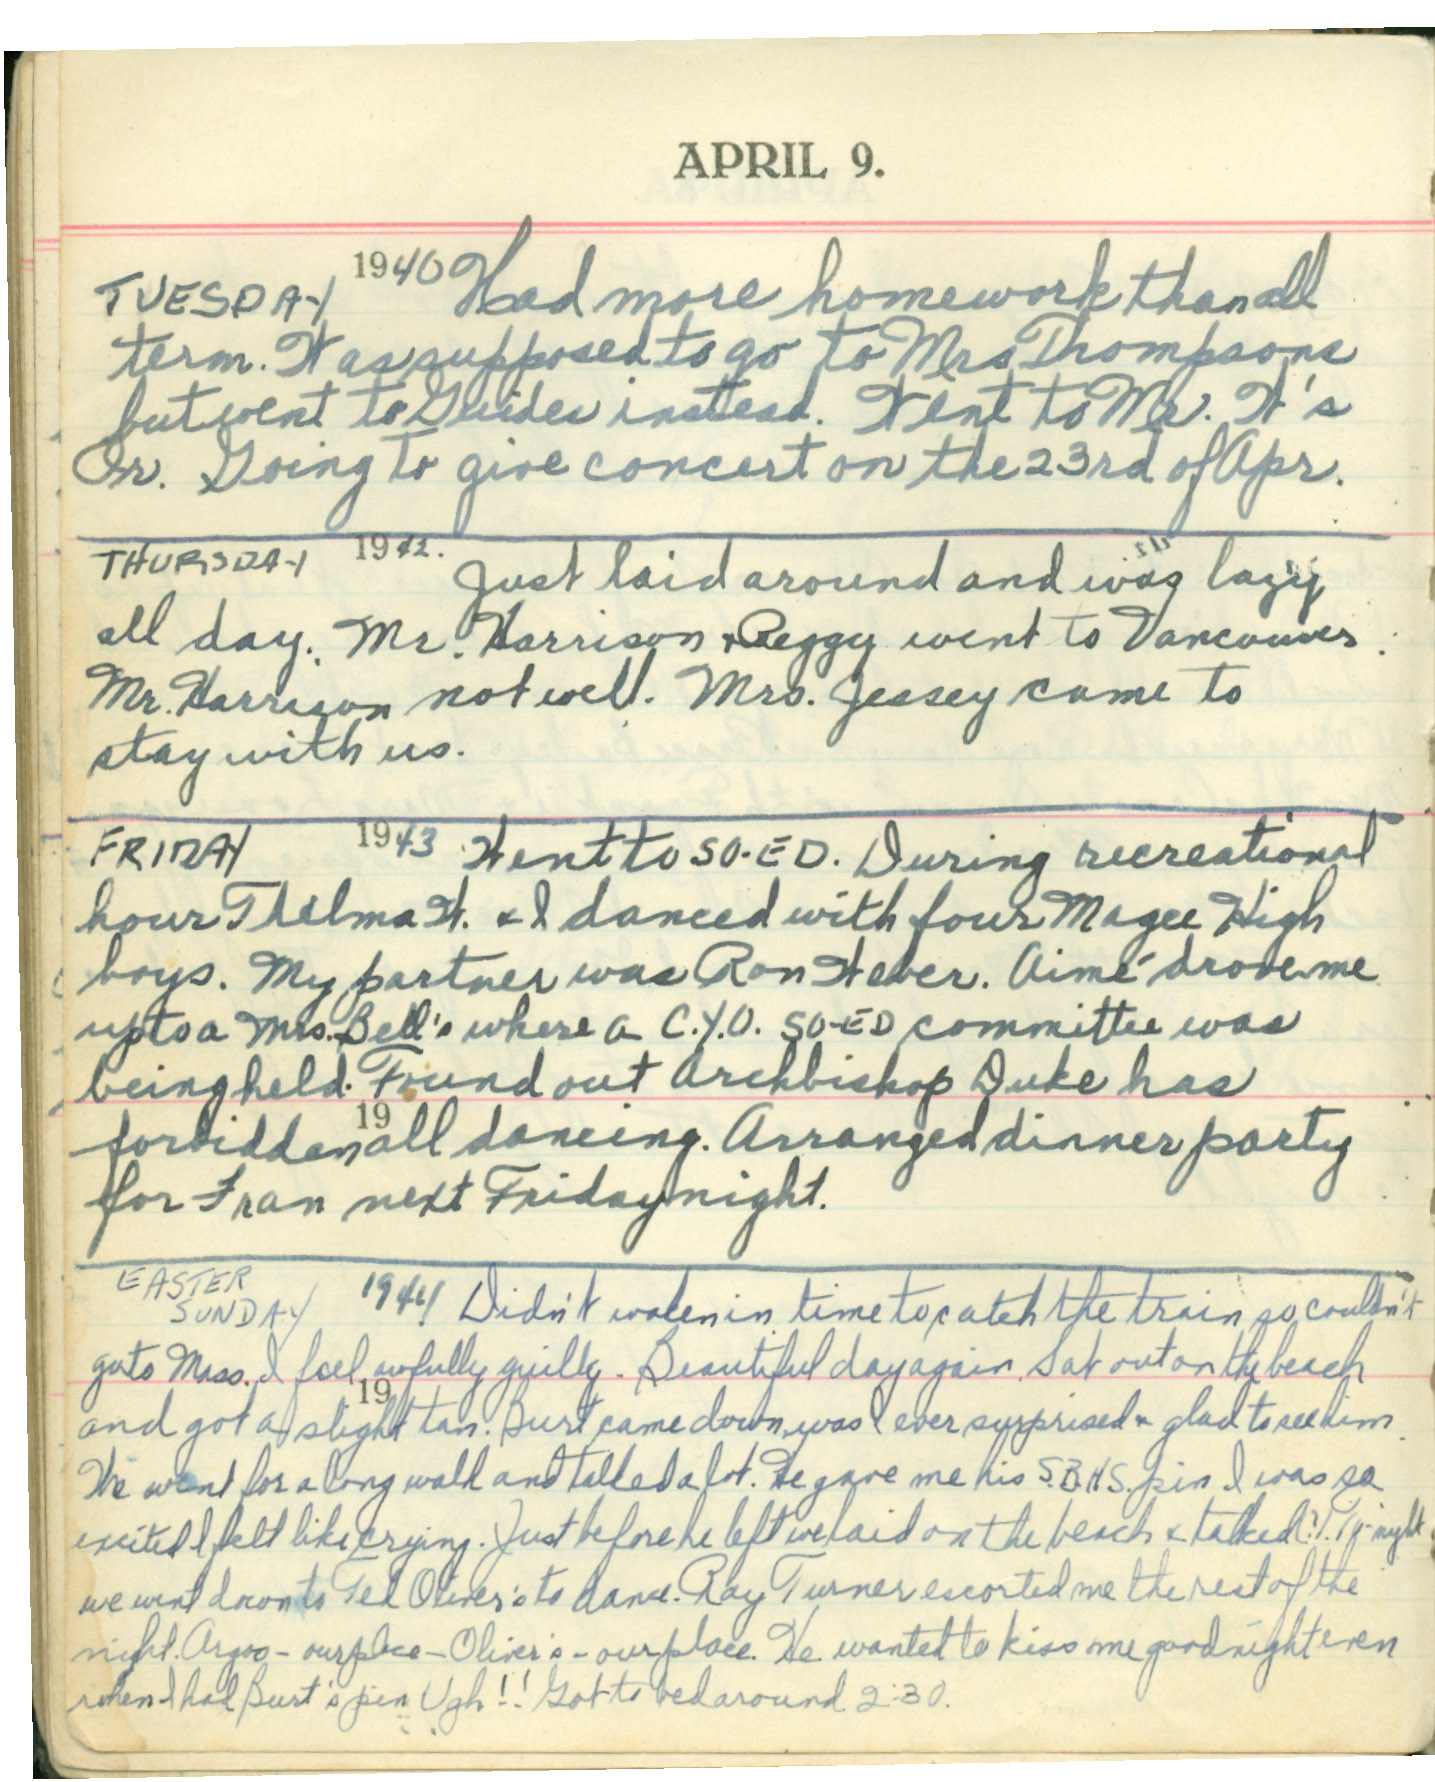 APRIL 9.
TUESDAY 1940 Had more homework than all
term. Was supposed to go to Mrs Thompsons
but went to Guides instead. Went to Mr. W's
Or. Going to give concert on the 23rd of Apr.
THURSDAY 1942. Just laid around and was lazy
all day. Mr. Harrison & Peggy went to Vancouver.
Mr. Harrison not well. Mrs. Jessey came to
stay with us.
FRIDAY 1943 Went to SO-ED. During recreational
hour Thelma W. & I danced with four Magee High
boys. My partner was Ron Weber. Aimé drove me
up to a Mrs. Bell's where a C.Y.O. SO-ED committee was
being held. Found out Archbishop Duke has
19
forbidden all dancing. Arranged dinner party
for Fran next Friday night.
EASTER
SUNDAY 1944 Didn't waken in time to catch the train so couldn't
go to Mass. I feel awfully guilty. Beautiful day again. Sat out on the beach
19
and got a slight tan. Burt came down, was I ever surprised & glad to see him.
We went for a long walk and talked a lot. He gave me his S.B.H.S. pin I was so
excited I felt like crying. Just before he left we laid on the beach & talked!!. To-night
we went down to Ted Oliver's to dance. Ray Turner escorted me the rest of the
night. Argos - our place - Oliver's - our place. He wanted to kiss me goodnight even
when I had Burt's pin Ugh!! Got to bed around 2:30.